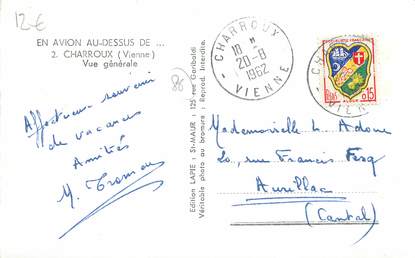 12 €
EN AVION AU-DESSUS DE ...
2. CHARROUX (Vienne)
Vue générale
Affectueux souvenir
de vacances
Amitiés
M.
Edition LAPIE : St-MAUR : 125 rue Garibaldi
Véritable photo au bromure : Reprod. Interdite.
86
CHARROUX
18 H
20-8
1962
VIENNE
0,15
Mademoiselle M. Adoue
rue Francis
Aurillac
(Cantal)